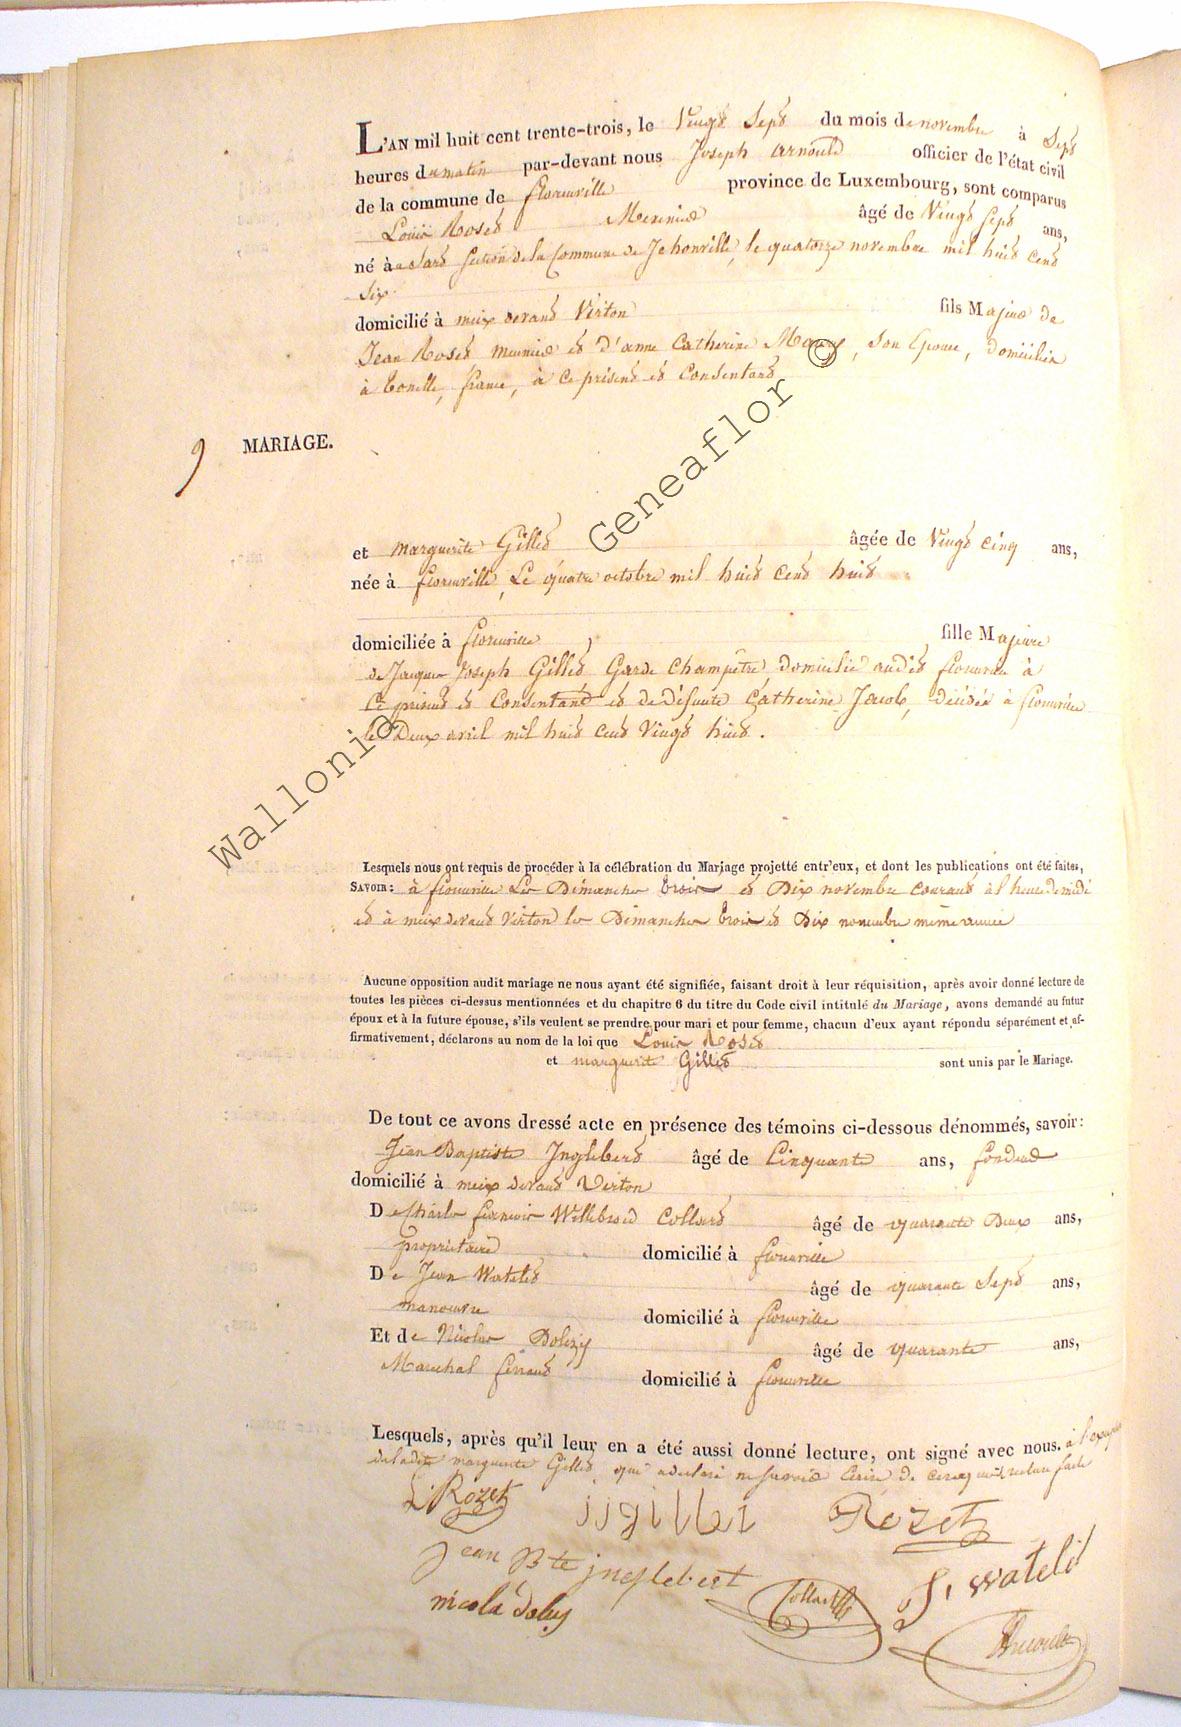 L'AN mil huit cent trente-trois, le Vingt Sept du mois de novembre à Sept
heures du matin par-devant nous Joseph Arnould officier de l'état civil
de la commune de florenville province de Luxembourg, sont comparus
Louis Roset Meunier âgé de Vingt Sept ans,
né à Sart Section de la Commune de Jehonville, le quatorze novembre mil huit cent
Six
domicilié à meix devant Virton fils Majeur de
Jean Roset meunier et d'anne Catherine son Epouse, domicilié
à france, à ce présent et Consentant
9 MARIAGE.
et marguerite Gillet âgée de Vingt cinq ans,
née à florenville, Le quatre octobre mil huit cent huit
domiciliée à florenville, fille Majeure
de Jacques Joseph Gillet Garde Champêtre domicilié audit florenville à
Ce présent et Consentant et de défunte Catherine Jacob, décédée à florenville
le Deux avril mil huit cent Vingt huit.
Lesquels nous ont requis de procéder à la célébration du Mariage projetté entr'eux, et dont les publications ont été faites,
SAVOIR: à florenville Les Dimanches trois et Dix novembre courant à l'heure de midi
et à meix devant Virton les Dimanches trois et Dix novembre même année
Aucune opposition audit mariage ne nous ayant été signifiée, faisant droit à leur réquisition, après avoir donné lecture de
toutes les pièces ci-dessus mentionnées et du chapitre 6 du titre du Code civil intitulé du Mariage, avons demandé au futur
époux et à la future épouse, s'ils veulent se prendre pour mari et pour femme, chacun d'eux ayant répondu séparément et af-
firmativement, déclarons au nom de la loi que Louis Roset
et marguerite Gillet sont unis par le Mariage.
De tout ce avons dressé acte en présence des témoins ci-dessous dénommés, savoir:
Jean Baptiste Inglebert âgé de Cinquante ans, fondeur
domicilié à meix devant Virton
De Charles françois Willebrord Collard âgé de quarante Deux ans,
propriétaire domicilié à florenville
De Jean Watelet âgé de quarante Sept ans,
manoeuvre domicilié à florenville
Et de Nicolas Dolizy âgé de quarante ans,
Marechal ferrant domicilié à florenville
Lesquels, après qu'il leur en a été aussi donné lecture, ont signé avec nous. à l'exception
de ladite marguerite Gillet, qui a déclaré ne savoir Ecrire de ce requise lecture faite
L Rozet jjgillet Rozet
jean Bte jnglebert Collard J. watelet
nicola dolizy Arnould
Wallonia Geneaflor ©